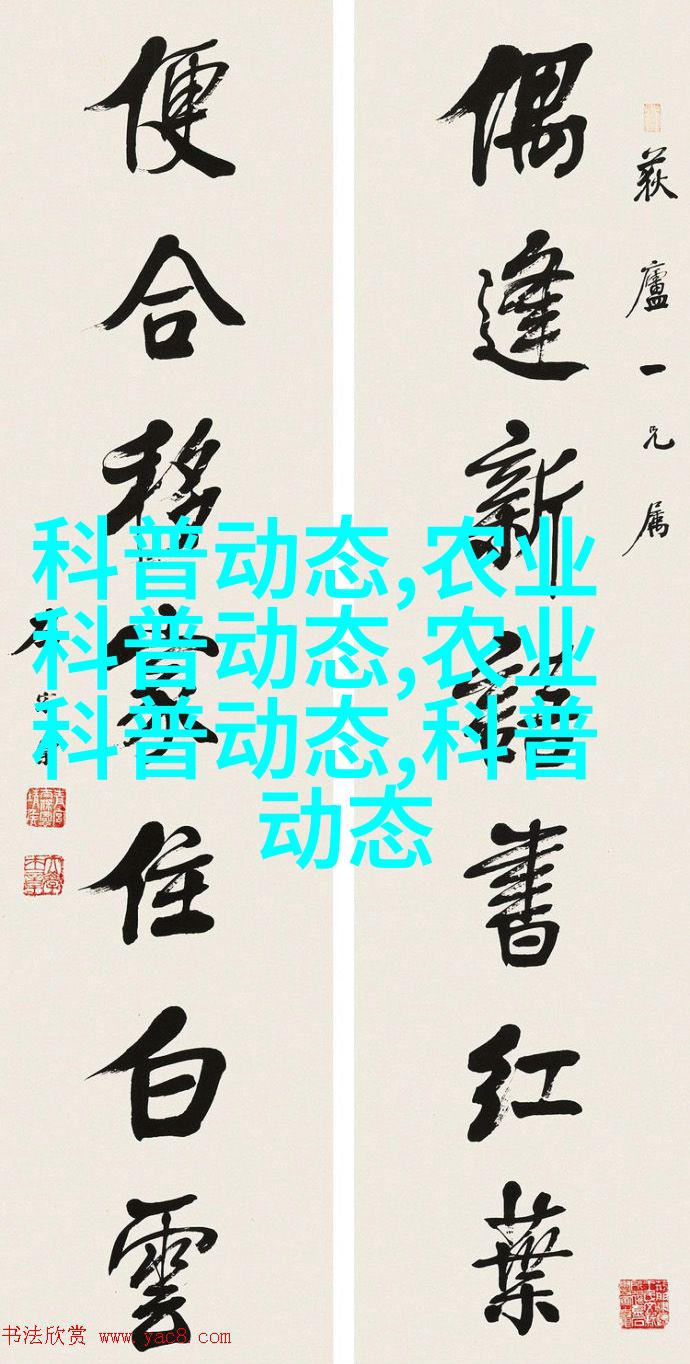 荻廬一兄属
偶逢新語書红葉
便合移住白雲
科普动态,农业
科普动态,农业
科普动态,科普
动态
书法欣赏 www.yac8.com